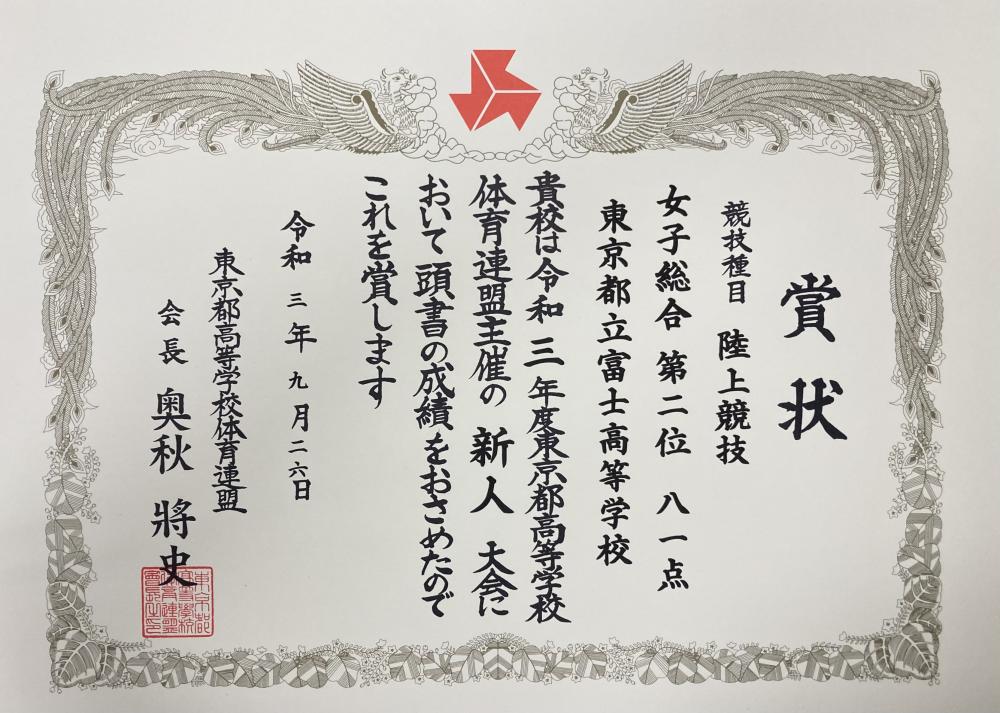 賞状
競技種目 陸上競技
女子総合 第二位 八一点
東京都立富士高等学校
貴校は令和三年度東京都高等学校
体育連盟主催の 新人 大会に
おいて頭書の成績をおさめたので
これを賞します
令和三年九月二六日
東京都高等学校体育連盟
会長 奥秋 將史
東京都
高等學校
体育連盟
會長之印